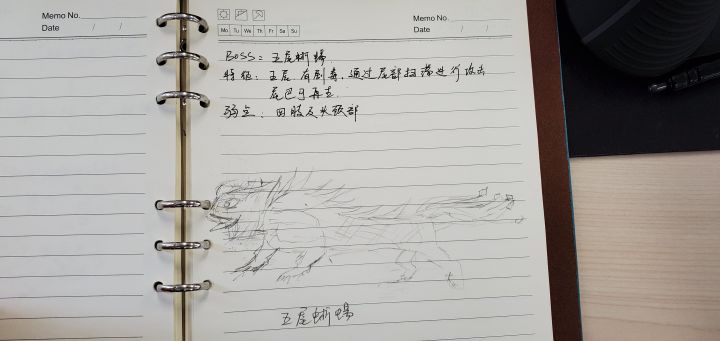 Memo No.
Date / /
Mo Tu We Th Fr Sa Su
Memo No.
Date / /
BOSS：五尾蜥蜴
特征：五尾，有剧毒，通过尾部扫荡进行攻击
尾巴可再生
弱点：四肢及头颈部
五尾蜥蜴